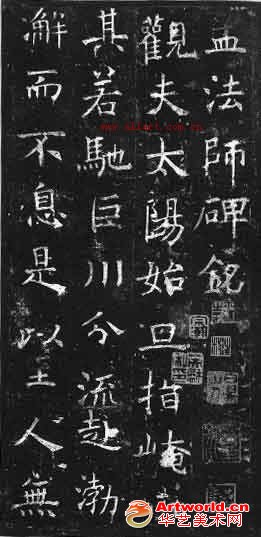 孟法師碑銘
觀夫太陽始旦指崦嵫
其若馳巨川分流赴渤
澥而不息是以至人無
Artworld.cn
华艺美术网